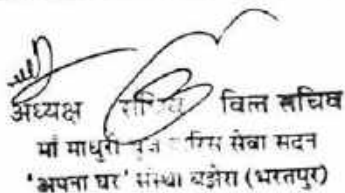 अध्यक्ष सचिव वित्त सचिव
माँ माधुरी बृज वारिस सेवा सदन
'अपना घर' संस्था बझेरा (भरतपुर)